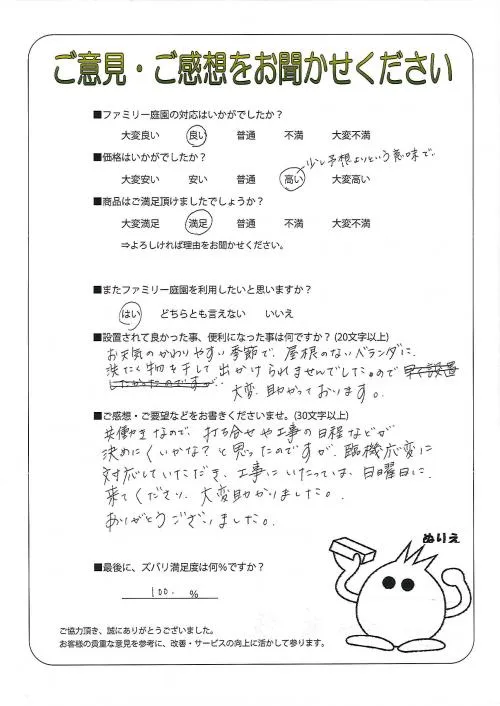 ご意見・ご感想をお聞かせください
■ファミリー庭園の対応はいかがでしたか？
大変良い 良い 普通 不満 大変不満
■価格はいかがでしたか？
少し予想よりという意味で。
大変安い 安い 普通 高い 大変高い
■商品はご満足頂けましたでしょうか？
大変満足 満足 普通 不満 大変不満
⇒よろしければ理由をお聞かせください。
■またファミリー庭園を利用したいと思いますか？
はい どちらとも言えない いいえ
■設置されて良かった事、便利になった事は何ですか？ (20文字以上)
お天気のかわりやすい季節で、屋根のないベランダに
洗たく物を干して出かけられませんでした。ので 早く設置
したかったのですが
大変、助かっております。
■ご感想・ご要望などをお書きくださいませ。(30文字以上)
共働きなので、打ち合せや工事の日程などが
決めにくいかな？と思ったのですが、臨機応変に
対応していただき、工事にいたっては、日曜日に
来てくださり、大変助かりました。
ありがとうございました。
ぬりえ
■最後に、ズバリ満足度は何%ですか？
100. %
ご協力頂き、誠にありがとうございました。
お客様の貴重な意見を参考に、改善・サービスの向上に活かして参ります。